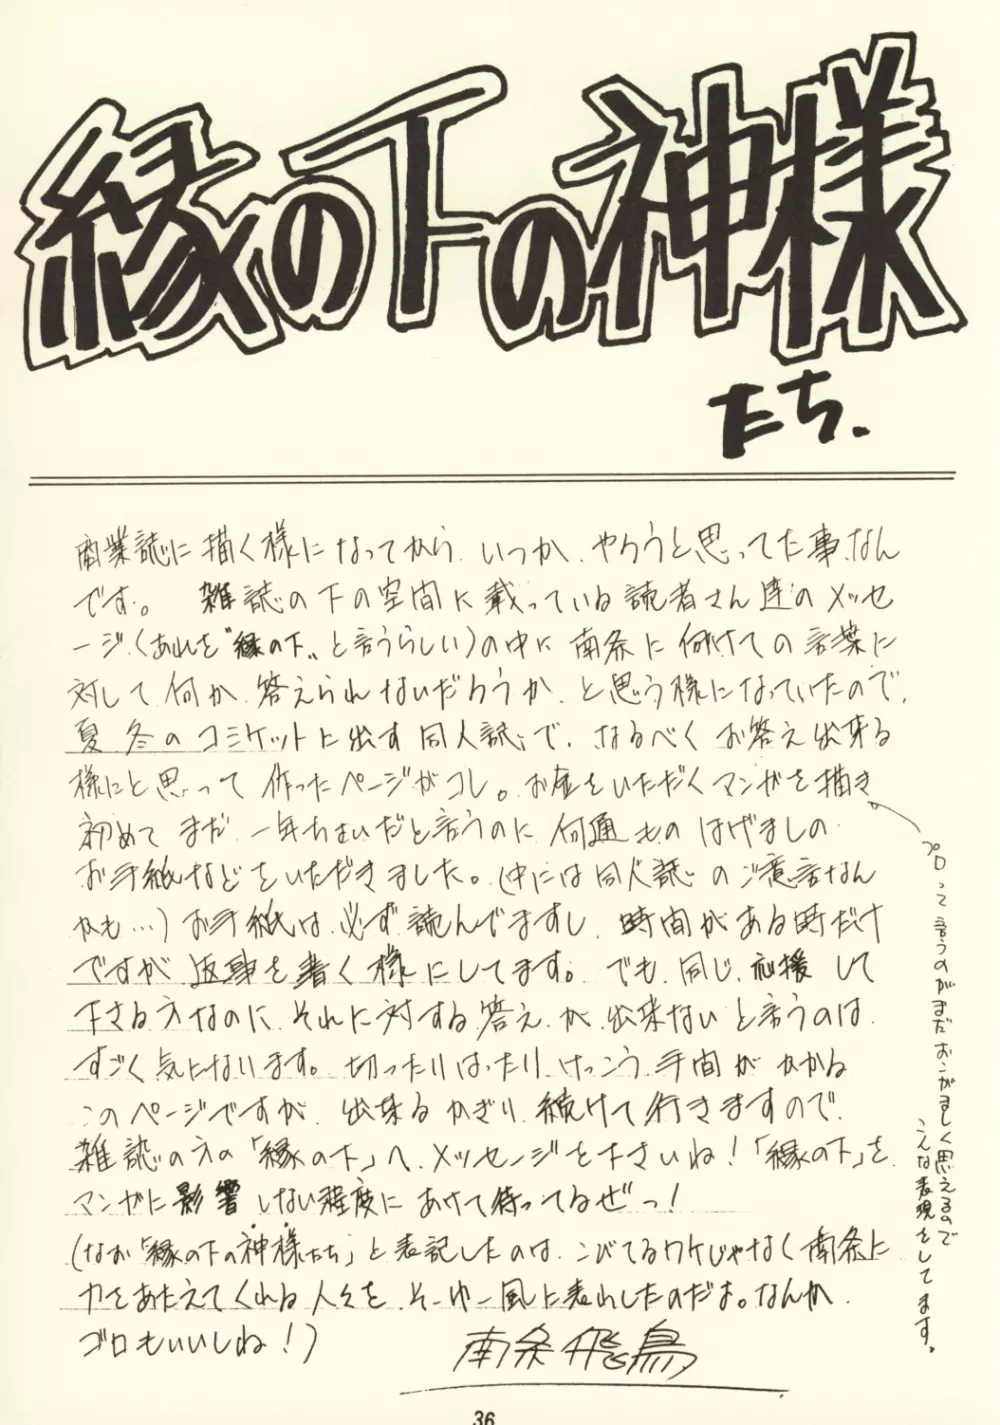 縁の下の神様
たち.
商業誌に描く様になってから、いつか、やろうと思ってた事なん
です。 雑誌の下の空間に載っている読者さん達のメッセ
ージ(あれを〝縁の下〟と言うらしい)の中に南条に向けての言葉に
対して何か答えられないだろうか、と思う様になっていたので、
夏冬のコミケットに出す同人誌で、なるべくお答え出来る
様にと思って作ったページがコレ。お金をいただくマンガを描き
初めてまだ、一年ちょいだと言うのに何通ものはげましの
お手紙などをいただきました。(中には同人誌のご意話なん
かも…)お手紙は必ず読んでますし、時間がある時だけ
ですが返事を書く様にしてます。でも同じ、応援して
下さる方なのに、それに対する答えが出来ないと言うのは、
すごく気になります。切ったりはったりけっこう手間がかかる
このページですが、出来るかぎり続けて行きますので、
雑誌の方の「縁の下」へ、メッセージを下さいね!「縁の下」を、
マンガに影響しない程度にあけて待ってるぜっ!
(なお「縁の下の神様たち」と表記したのは、こびてるワケじゃなく南条に
力をあたえてくれる人々を、そーゆー風に表わしたのだよ。なんか
ゴロもいいしね!)
南条飛鳥
プロって言うのがまだおこがましく思えるので
こんな表現をしてます。
36